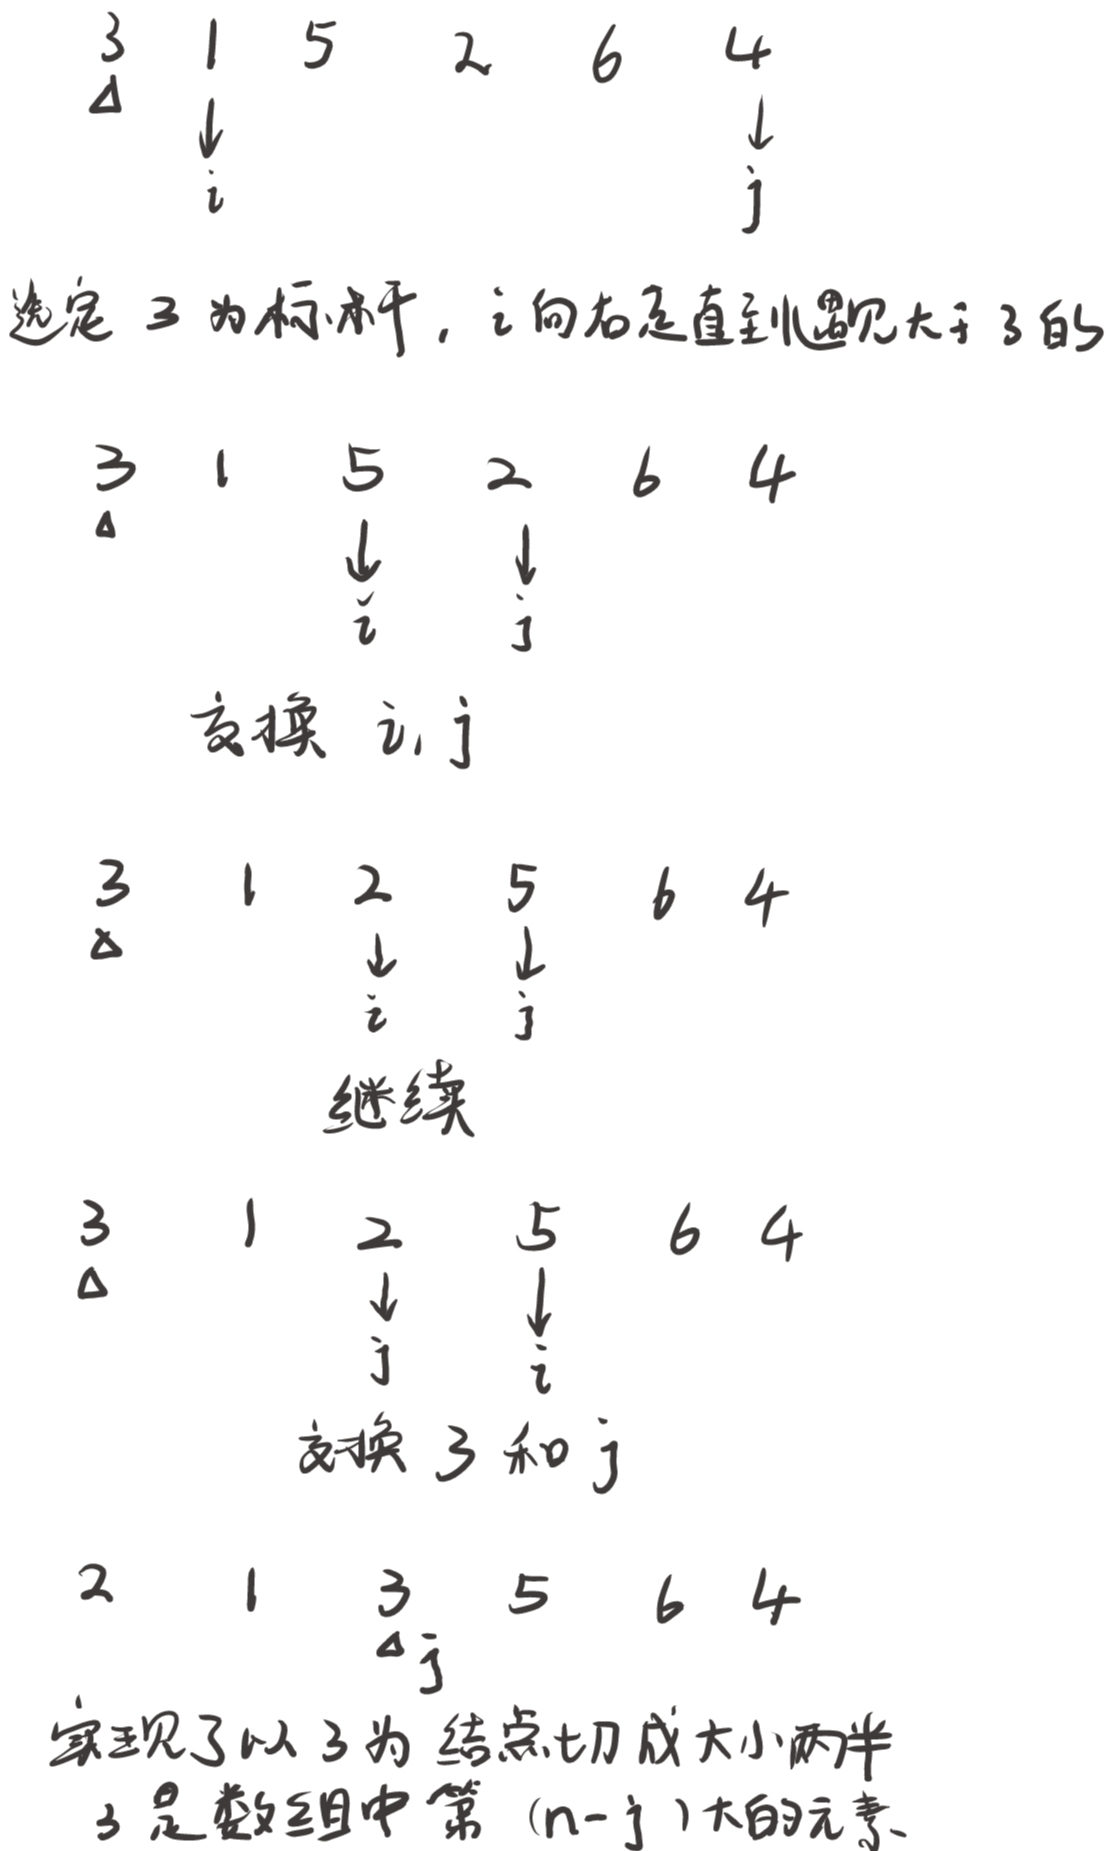 3 1 5 2 6 4
i j
选定 3 为标杆, i 向右走直到遇见大于 3 的
3 1 5 2 6 4
i j
交换 i, j
3 1 2 5 6 4
i j
继续
3 1 2 5 6 4
j i
交换 3 和 j
2 1 3 5 6 4
j
实现了以 3 为 结点切成大小两半
3 是数组中第 (n-j) 大的元素